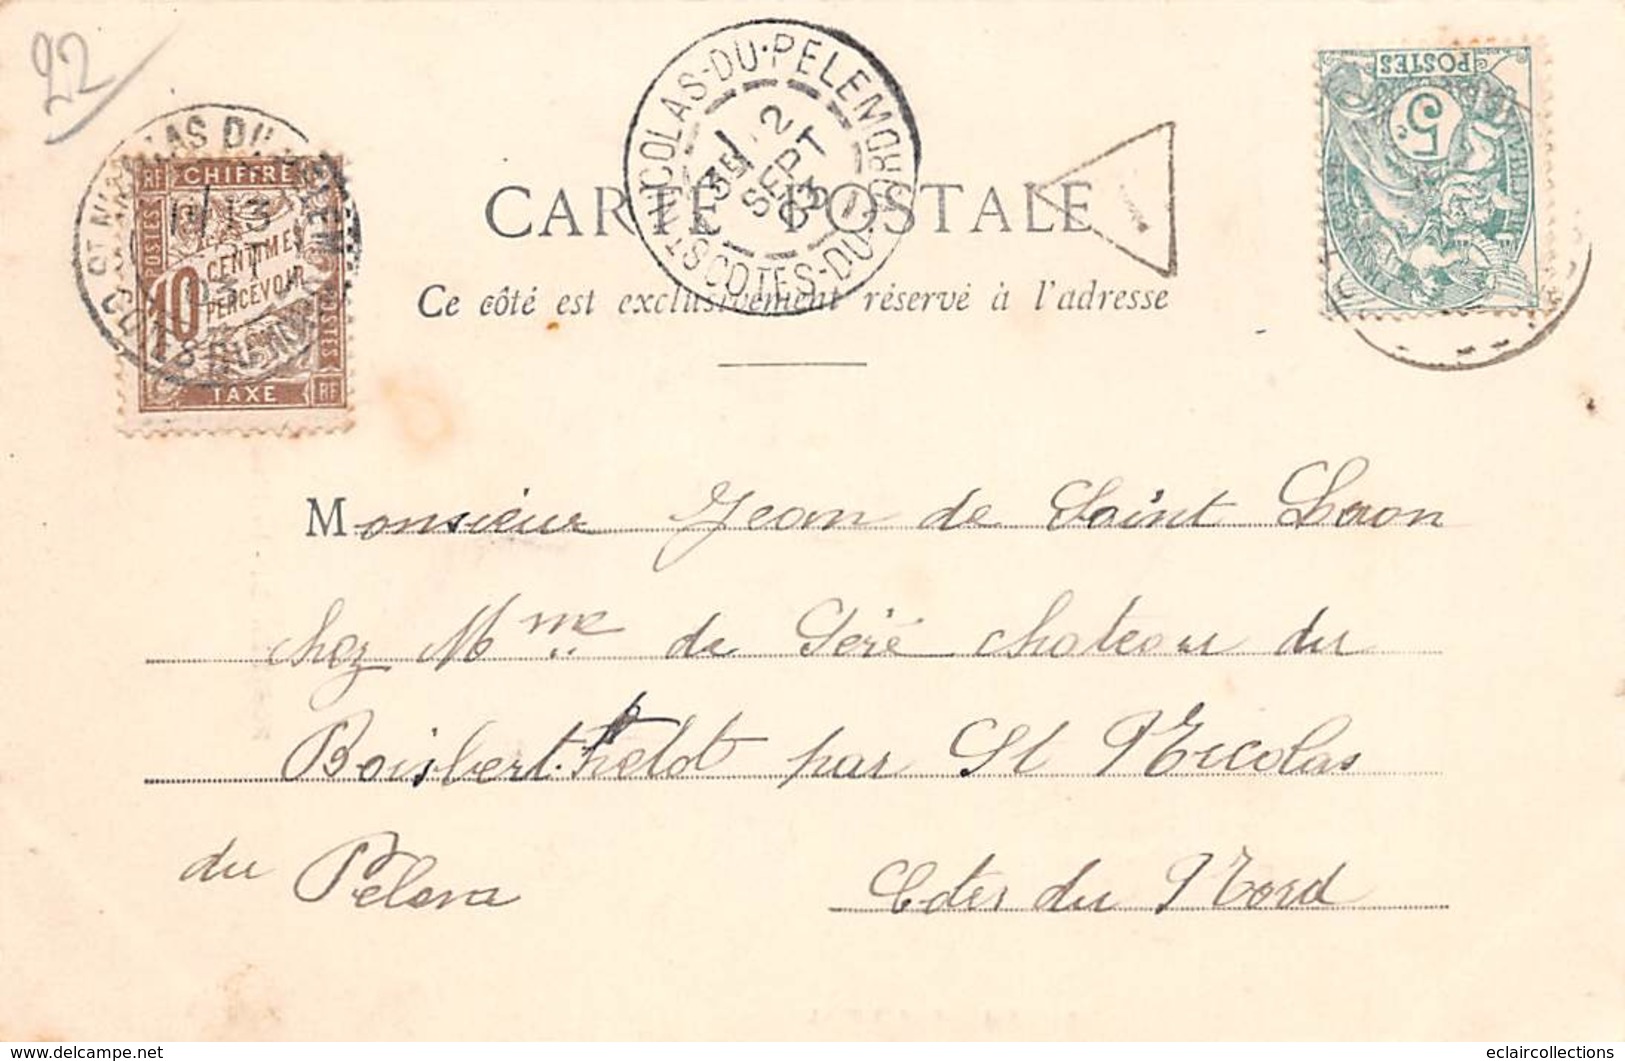 22
ST NICOLAS-DU-PELEM
COTES-DU-NORD
1E
2
SEPT
03
ST NICOLAS DU PELEM
COTES DU NORD
13
03
RF CHIFFRE
POSTES
10 CENTIMES
À PERCEVOIR
POSTES
TAXE RF
POSTES
5
CARTE POSTALE
Ce côté est exclusivement réservé à l'adresse
Monsieur Jean de Saint Laon
chez Mme de Séré chateau du
Boisberthelot par St Nicolas
du Pelem Cotes du Nord
eclaircollections
www.delcampe.net